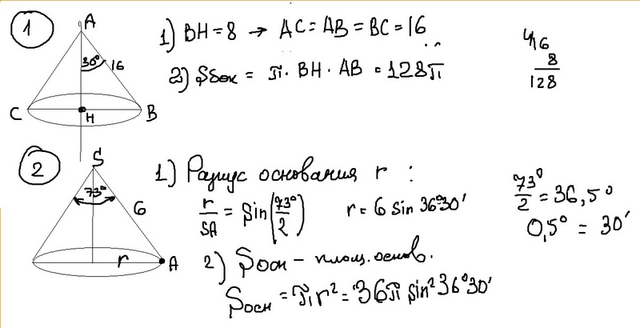 1
A
30°
16
C
H
B
1) BH = 8 → AC = AB = BC = 16
2) Sбок = π · BH · AB = 128π
4/16
8
128
2
S
73°
6
r
A
1) Радиус основания r :
r/SA = sin(73°/2) r = 6 sin 36°30'
73°/2 = 36,5°
0,5° = 30'
2) Sосн – площ. основ.
Sосн = πr² = 36π sin² 36°30'